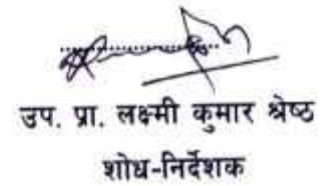 उप. प्रा. लक्ष्मी कुमार श्रेष्ठ
शोध-निर्देशक